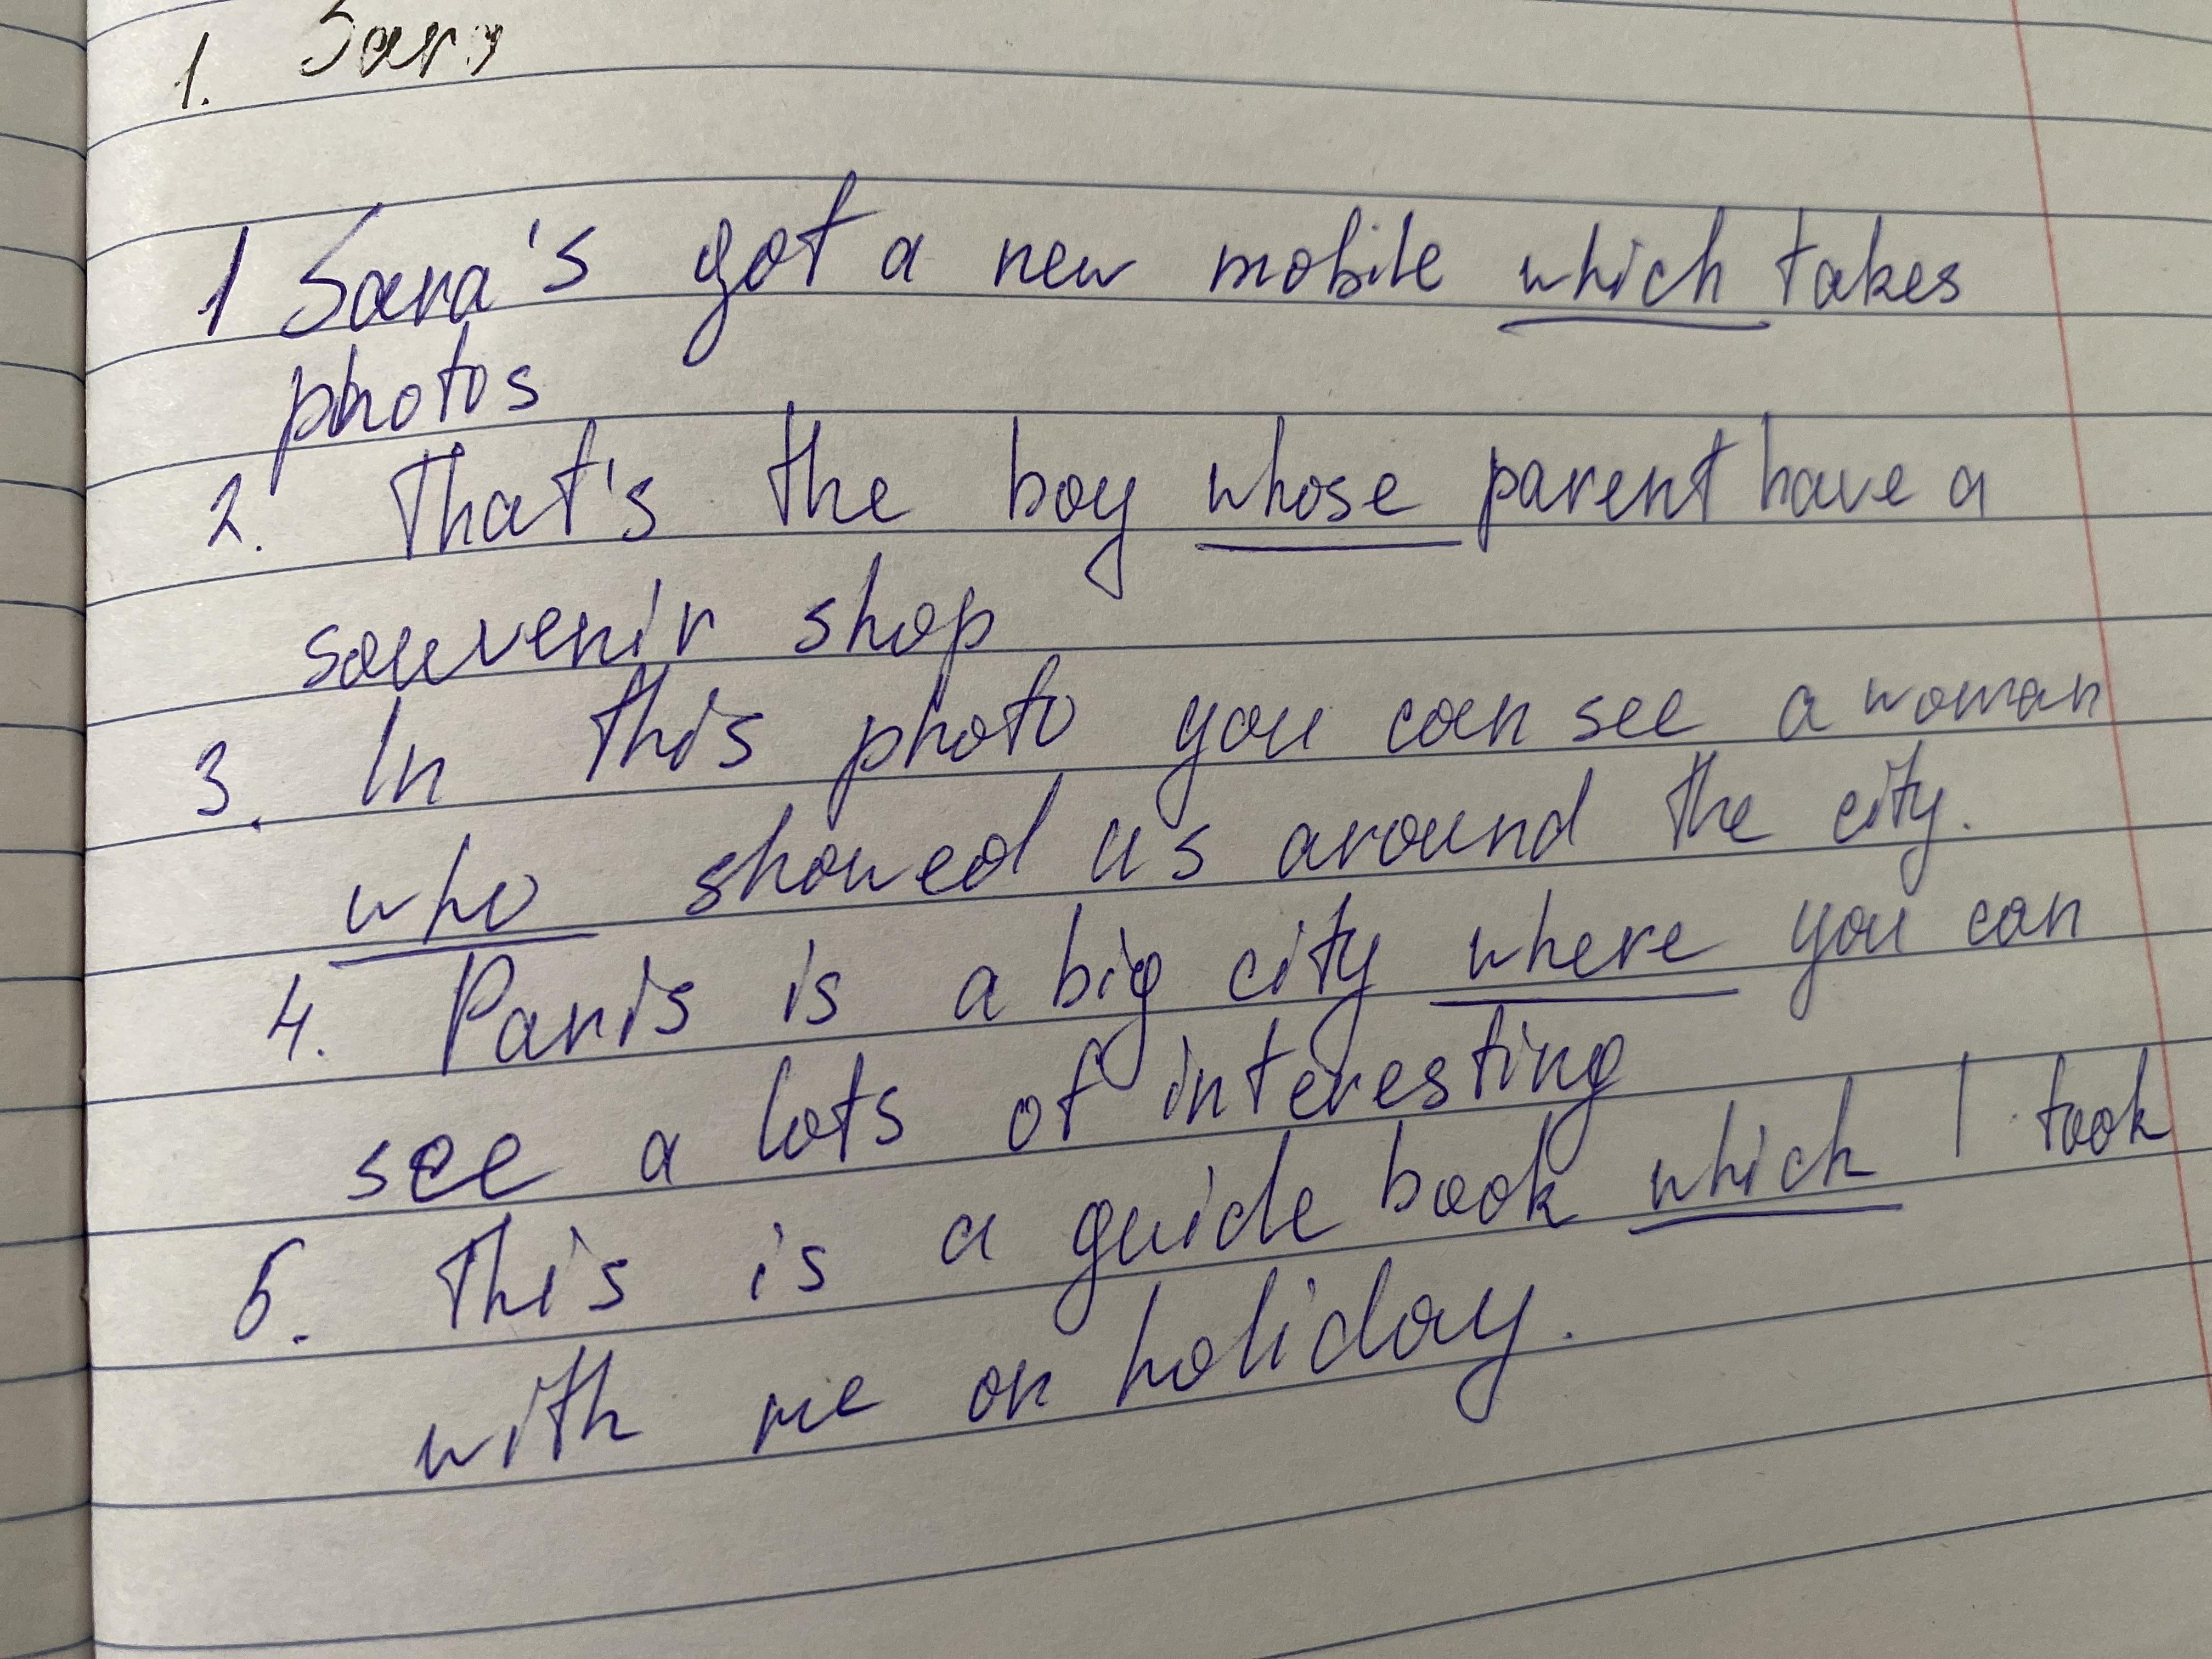 1. Sara
1 Sara's got a new mobile which takes
photos
2. That's the boy whose parent have a
souvenir shop
3. In this photo you can see a woman
who showed us around the city.
4. Paris is a big city where you can
see a lots of interesting
5. This is a guide book which I took
with me on holiday.